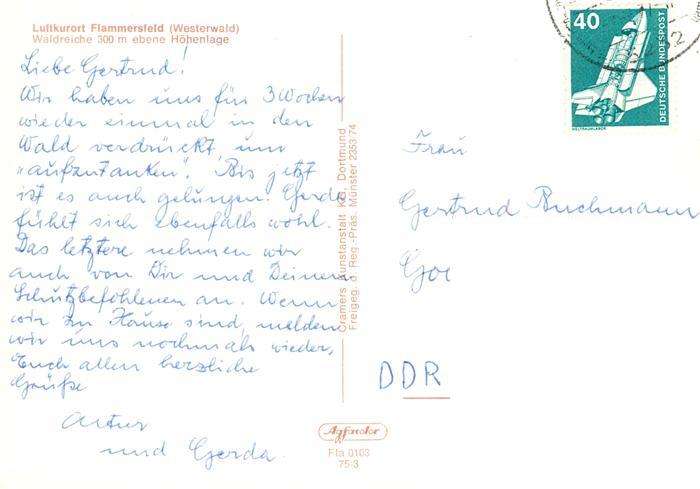 Luftkurort Flammersfeld (Westerwald)
Waldreiche 300 m ebene Höhenlage
Liebe Gertrud!
Wir haben uns für 3 Wochen
wieder einmal in den
Wald verdrückt, um
"aufzutanken". Bis jetzt
ist es auch gelungen. Gerda
fühlt sich ebenfalls wohl.
Das letztere nehmen wir
auch von Dir und Deinen
Schutzbefohlenen an. Wenn
wir zu Hause sind, melden
wir uns nochmals wieder,
Euch allen herzliche
Grüße
Artur
und Gerda.
Cramers Kunstanstalt KG, Dortmund
Freigeg. d. Reg.-Präs. Münster 2353/74
Agfacolor
Fla 0103
75-3
40
DEUTSCHE BUNDESPOST
WELTRAUMLABOR
Frau
Gertrud Buchmann
DDR